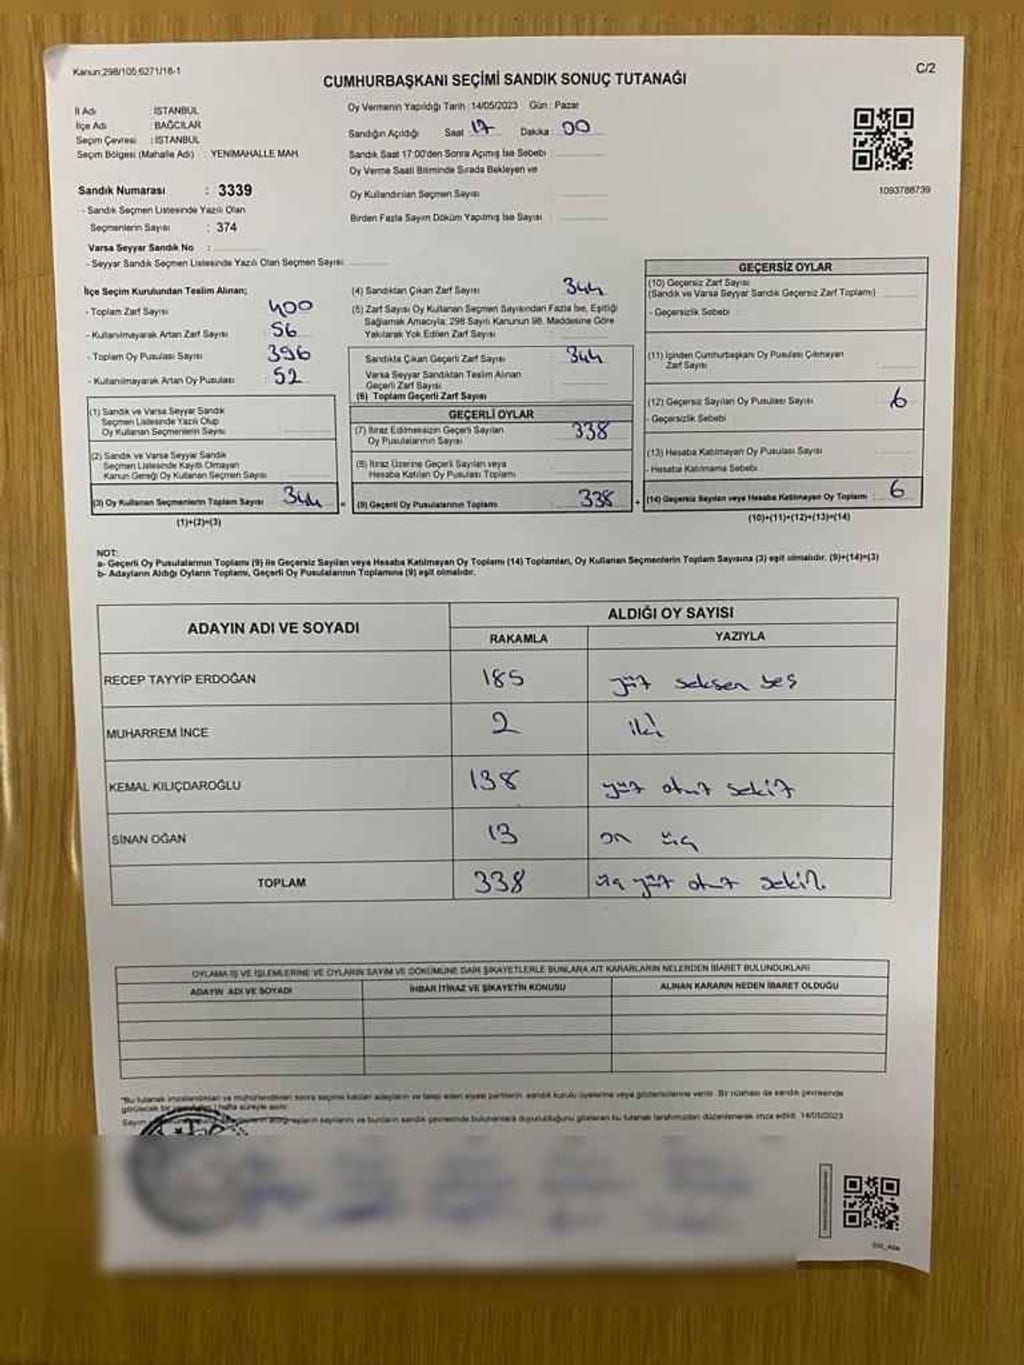 Kanun;298/105;6271/18-1
C/2
CUMHURBAŞKANI SEÇİMİ SANDIK SONUÇ TUTANAĞI
İl Adı : İSTANBUL
İlçe Adı : BAĞCILAR
Seçim Çevresi : İSTANBUL
Seçim Bölgesi (Mahalle Adı) : YENİMAHALLE MAH.
Sandık Numarası : 3339
- Sandık Seçmen Listesinde Yazılı Olan
Seçmenlerin Sayısı : 374
Varsa Seyyar Sandık No :
- Seyyar Sandık Seçmen Listesinde Yazılı Olan Seçmen Sayısı:
Oy Vermenin Yapıldığı Tarih :14/05/2023 Gün : Pazar
Sandığın Açıldığı Saat 17 Dakika 00
Sandık Saat 17:00'den Sonra Açımış İse Sebebi :
Oy Verme Saati Bitiminde Sırada Bekleyen ve
Oy Kullandırılan Seçmen Sayısı
Birden Fazla Sayım Döküm Yapılmış İse Sayısı :
1093788739
İlçe Seçim Kurulundan Teslim Alınan;
- Toplam Zarf Sayısı : 400
- Kullanılmayarak Artan Zarf Sayısı : 56
- Toplam Oy Pusulası Sayısı : 396
- Kullanılmayarak Artan Oy Pusulası : 52
(1) Sandık ve Varsa Seyyar Sandık
Seçmen Listesinde Yazılı Olup
Oy Kullanan Seçmenlerin Sayısı :
(2) Sandık ve Varsa Seyyar Sandık
Seçmen Listesinde Kayıtlı Olmayan
Kanun Gereği Oy Kullanan Seçmen Sayısı :
(3) Oy Kullanan Seçmenlerin Toplam Sayısı : 344
(1)+(2)=(3)
(4) Sandıktan Çıkan Zarf Sayısı : 344
(5) Zarf Sayısı Oy Kullanan Seçmen Sayısından Fazla İse, Eşitliği
Sağlamak Amacıyla; 298 Sayılı Kanunun 98. Maddesine Göre
Yakılarak Yok Edilen Zarf Sayısı
Sandıkta Çıkan Geçerli Zarf Sayısı : 344
Varsa Seyyar Sandıktan Teslim Alınan
Geçerli Zarf Sayısı
(6) Toplam Geçerli Zarf Sayısı
GEÇERLİ OYLAR
(7) İtiraz Edilmeksizin Geçerli Sayılan
Oy Pusulalarının Sayısı : 338
(8) İtiraz Üzerine Geçerli Sayılan veya
Hesaba Katılan Oy Pusulası Toplamı :
= (9) Geçerli Oy Pusulalarının Toplamı : 338
GEÇERSİZ OYLAR
(10) Geçersiz Zarf Sayısı
(Sandık ve Varsa Seyyar Sandık Geçersiz Zarf Toplamı) :
- Geçersizlik Sebebi :
(11) İçinden Cumhurbaşkanı Oy Pusulası Çıkmayan
Zarf Sayısı :
(12) Geçersiz Sayılan Oy Pusulası Sayısı : 6
- Geçersizlik Sebebi :
(13) Hesaba Katılmayan Oy Pusulası Sayısı :
- Hesaba Katılmama Sebebi :
+ (14) Geçersiz Sayılan veya Hesaba Katılmayan Oy Toplamı : 6
(10)+(11)+(12)+(13)=(14)
NOT:
a- Geçerli Oy Pusulalarının Toplamı (9) ile Geçersiz Sayılan veya Hesaba Katılmayan Oy Toplamı (14) Toplamları, Oy Kullanan Seçmenlerin Toplam Sayısına (3) eşit olmalıdır. (9)+(14)=(3)
b- Adayların Aldığı Oyların Toplamı, Geçerli Oy Pusulalarının Toplamına (9) eşit olmalıdır.
ADAYIN ADI VE SOYADI
ALDIĞI OY SAYISI
RAKAMLA YAZIYLA
RECEP TAYYİP ERDOĞAN 185 yüz seksen beş
MUHARREM İNCE 2 iki
KEMAL KILIÇDAROĞLU 138 yüz otuz sekiz
SİNAN OĞAN 13 on üç
TOPLAM 338 üç yüz otuz sekiz.
OYLAMA İŞ VE İŞLEMLERİNE VE OYLARIN SAYIM VE DÖKÜMÜNE DAİR ŞİKAYETLERLE BUNLARA AİT KARARLARIN NELERDEN İBARET BULUNDUKLARI
ADAYIN ADI VE SOYADI İHBAR İTİRAZ VE ŞİKAYETİN KONUSU ALINAN KARARIN NEDEN İBARET OLDUĞU
"Bu tutanak imzalandıktan ve mühürlendikten sonra seçime katılan adayların ve talep eden siyasi partilerin sandık kurulu üyelerine veya gözlemcilerine verilir. Bir nüshası da sandık çevresinde
hafta süreyle asılır.
sayılarını ve bunların sandık çevresinde bulunanlara duyurulduğunu gösteren bu tutanak tarafımızdan düzenlenerek imza edildi. 14/05/2023